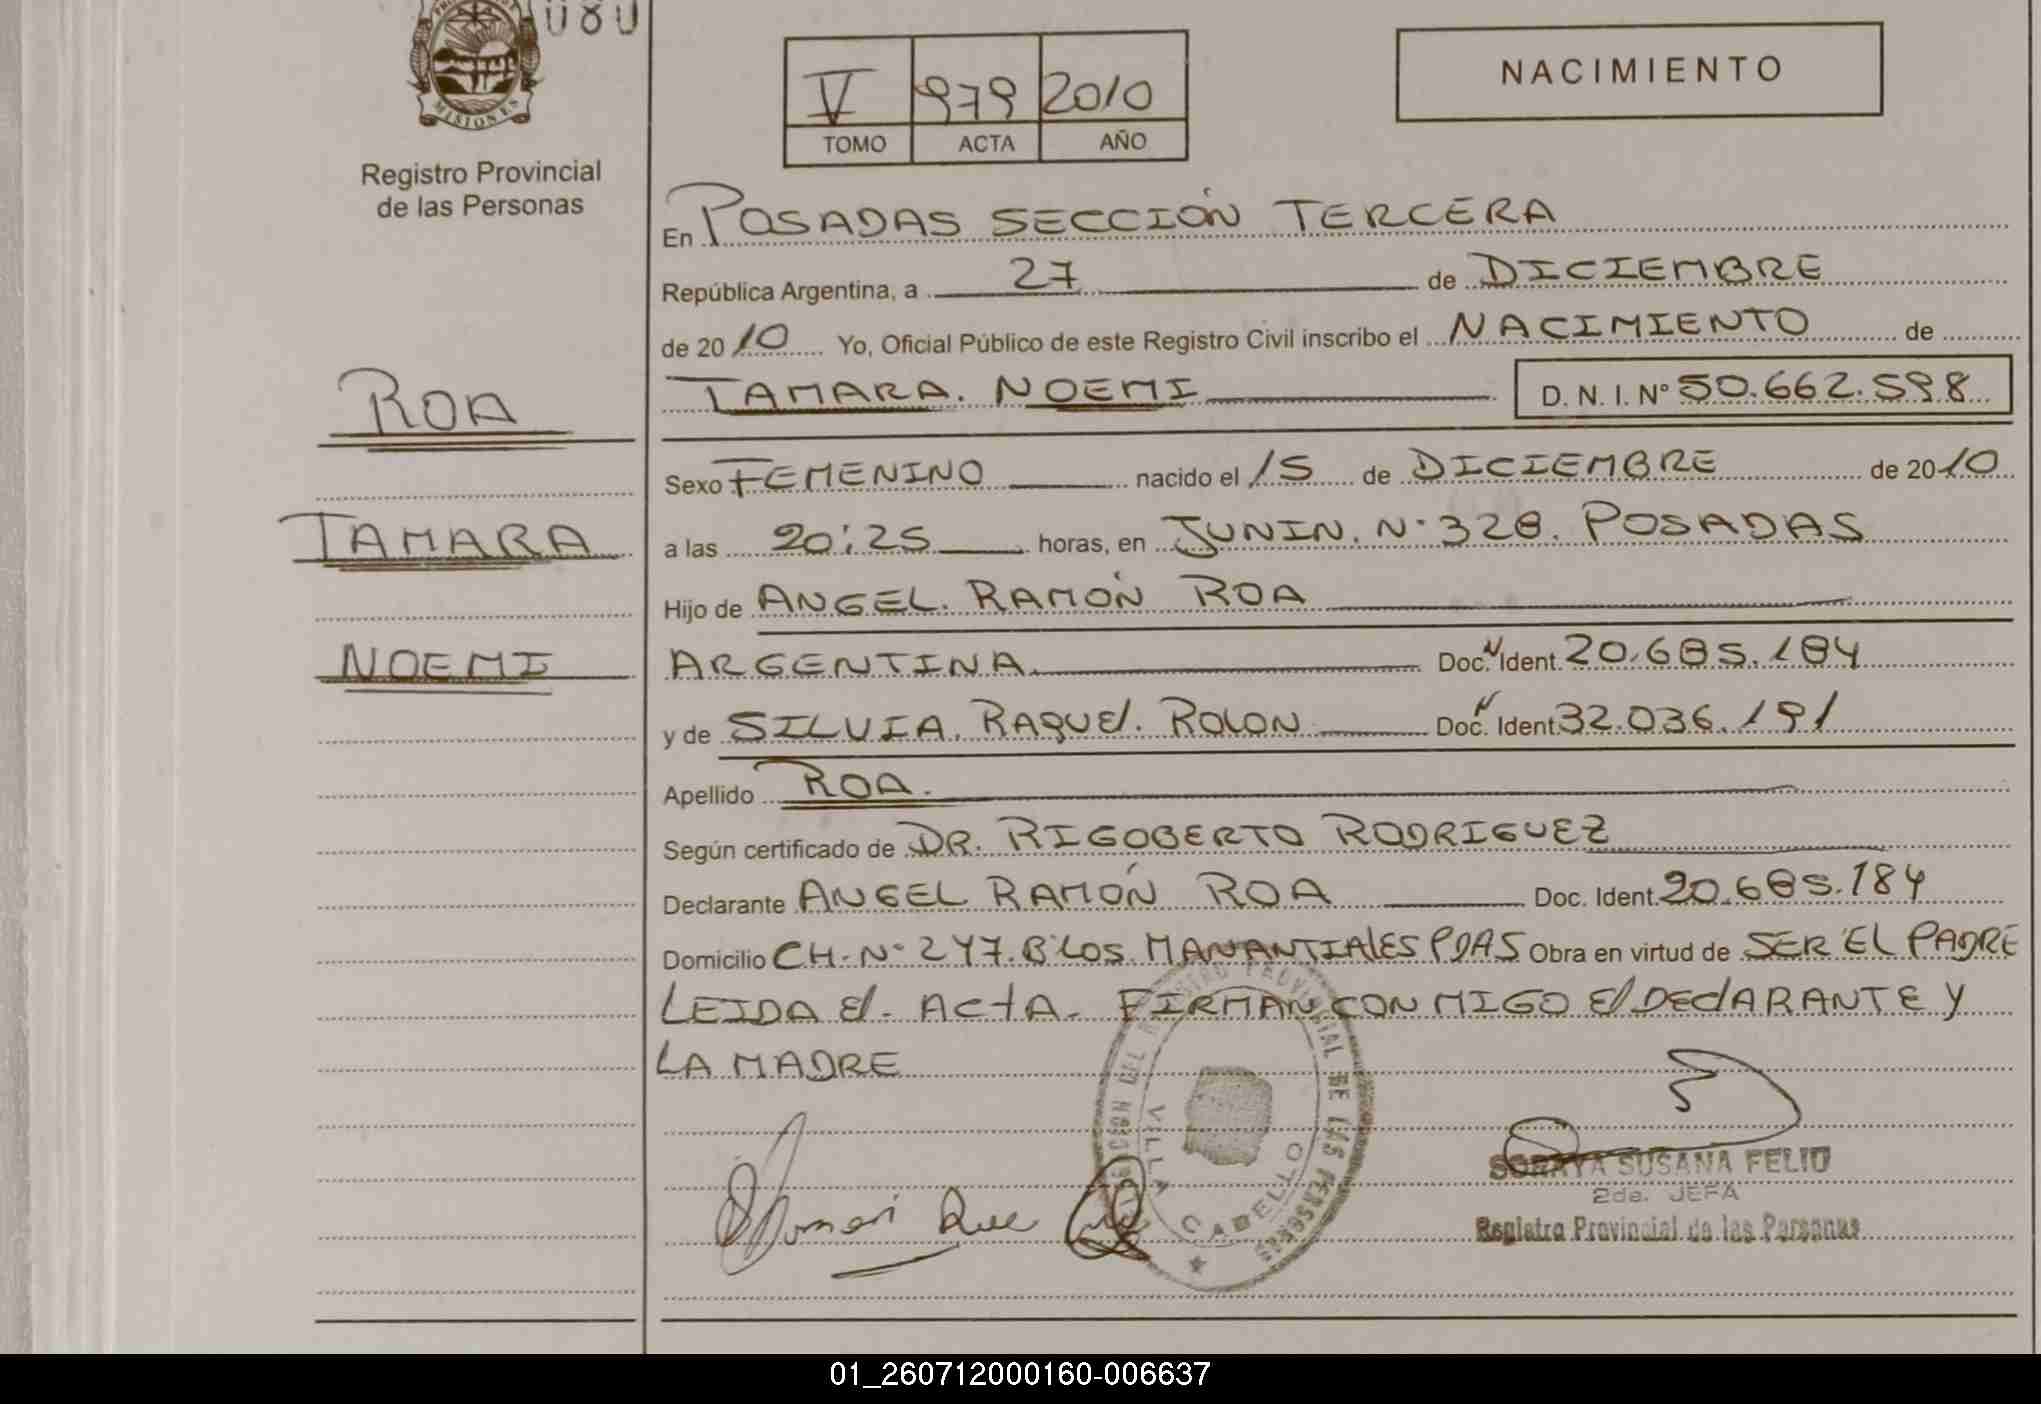 080
MISIONES
Registro Provincial
de las Personas
ROA
TAMARA
NOEMI
V 979 2010
TOMO ACTA AÑO
NACIMIENTO
En POSADAS SECCIÓN TERCERA
República Argentina, a 27 de DICIEMBRE
de 2010 Yo, Oficial Público de este Registro Civil inscribo el NACIMIENTO de
TAMARA. NOEMI D. N. I. Nº 50.662.598
Sexo FEMENINO nacido el 15 de DICIEMBRE de 2010
a las 20:25 horas, en JUNIN. Nº 328. POSADAS
Hijo de ANGEL. RAMÓN ROA
ARGENTINA Doc. N Ident. 20.685.184
y de SILVIA. RAQUEl. ROLON Doc. N Ident. 32.036.191
Apellido ROA.
Según certificado de DR. RIGOBERTO RODRIGUEZ
Declarante ANGEL RAMÓN ROA Doc. Ident. 20.685.184
Domicilio CH. Nº 247. Bº LOS. MANANTIALES PDAS Obra en virtud de SER EL PADRE
LEIDA El. ACTA. FIRMAN CON MIGO El DEClARANTE Y
LA MADRE
REGISTRO PROVINCIAL DE LAS PERSONAS
VILLA CABELLO
SORAYA SUSANA FELIU
2da. JEFA
Registro Provincial de las Personas
01_260712000160-006637